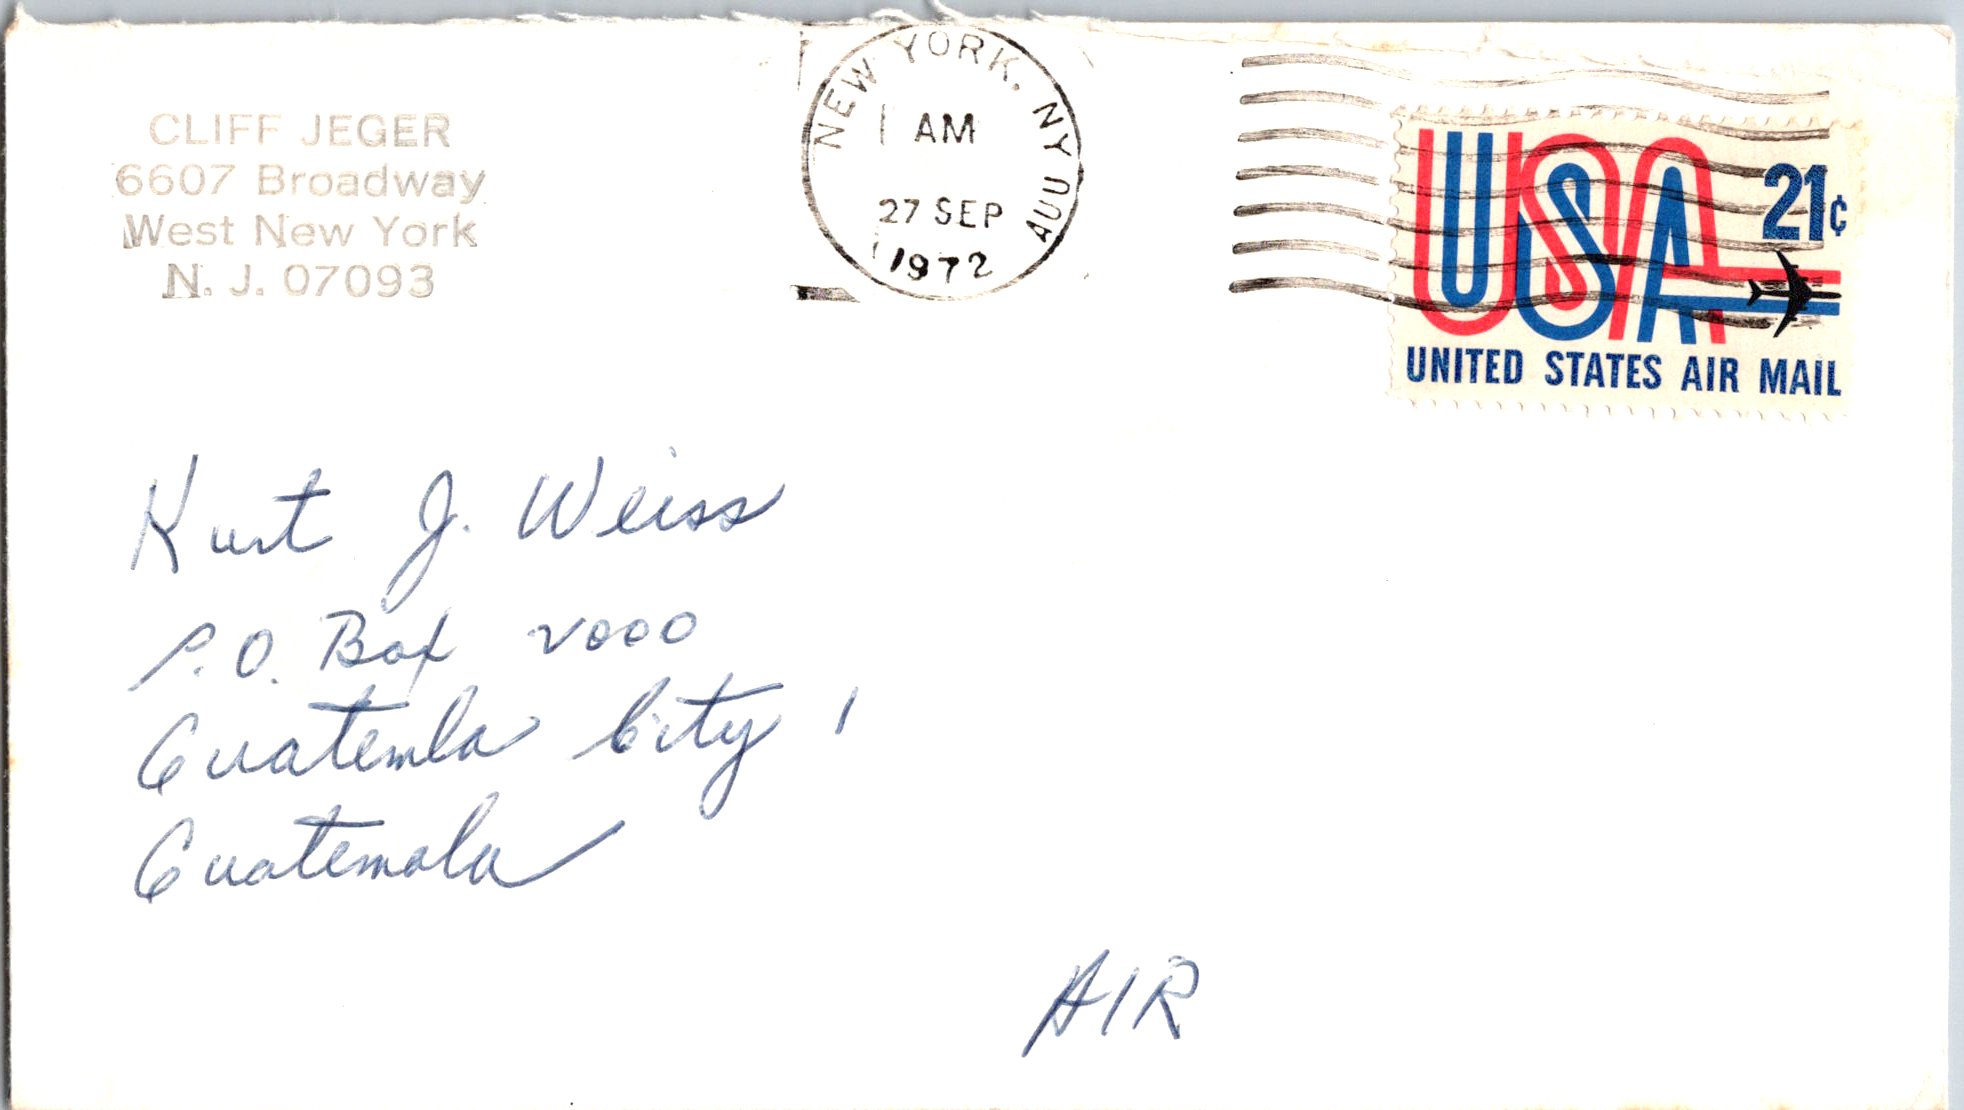 CLIFF JEGER
6607 Broadway
West New York
N. J. 07093
NEW YORK, NY
AM
27 SEP
1972
USA 21¢
UNITED STATES AIR MAIL
Kurt J. Weiss
P.O. Box 2000
Guatemla City 1
Guatemala
AIR